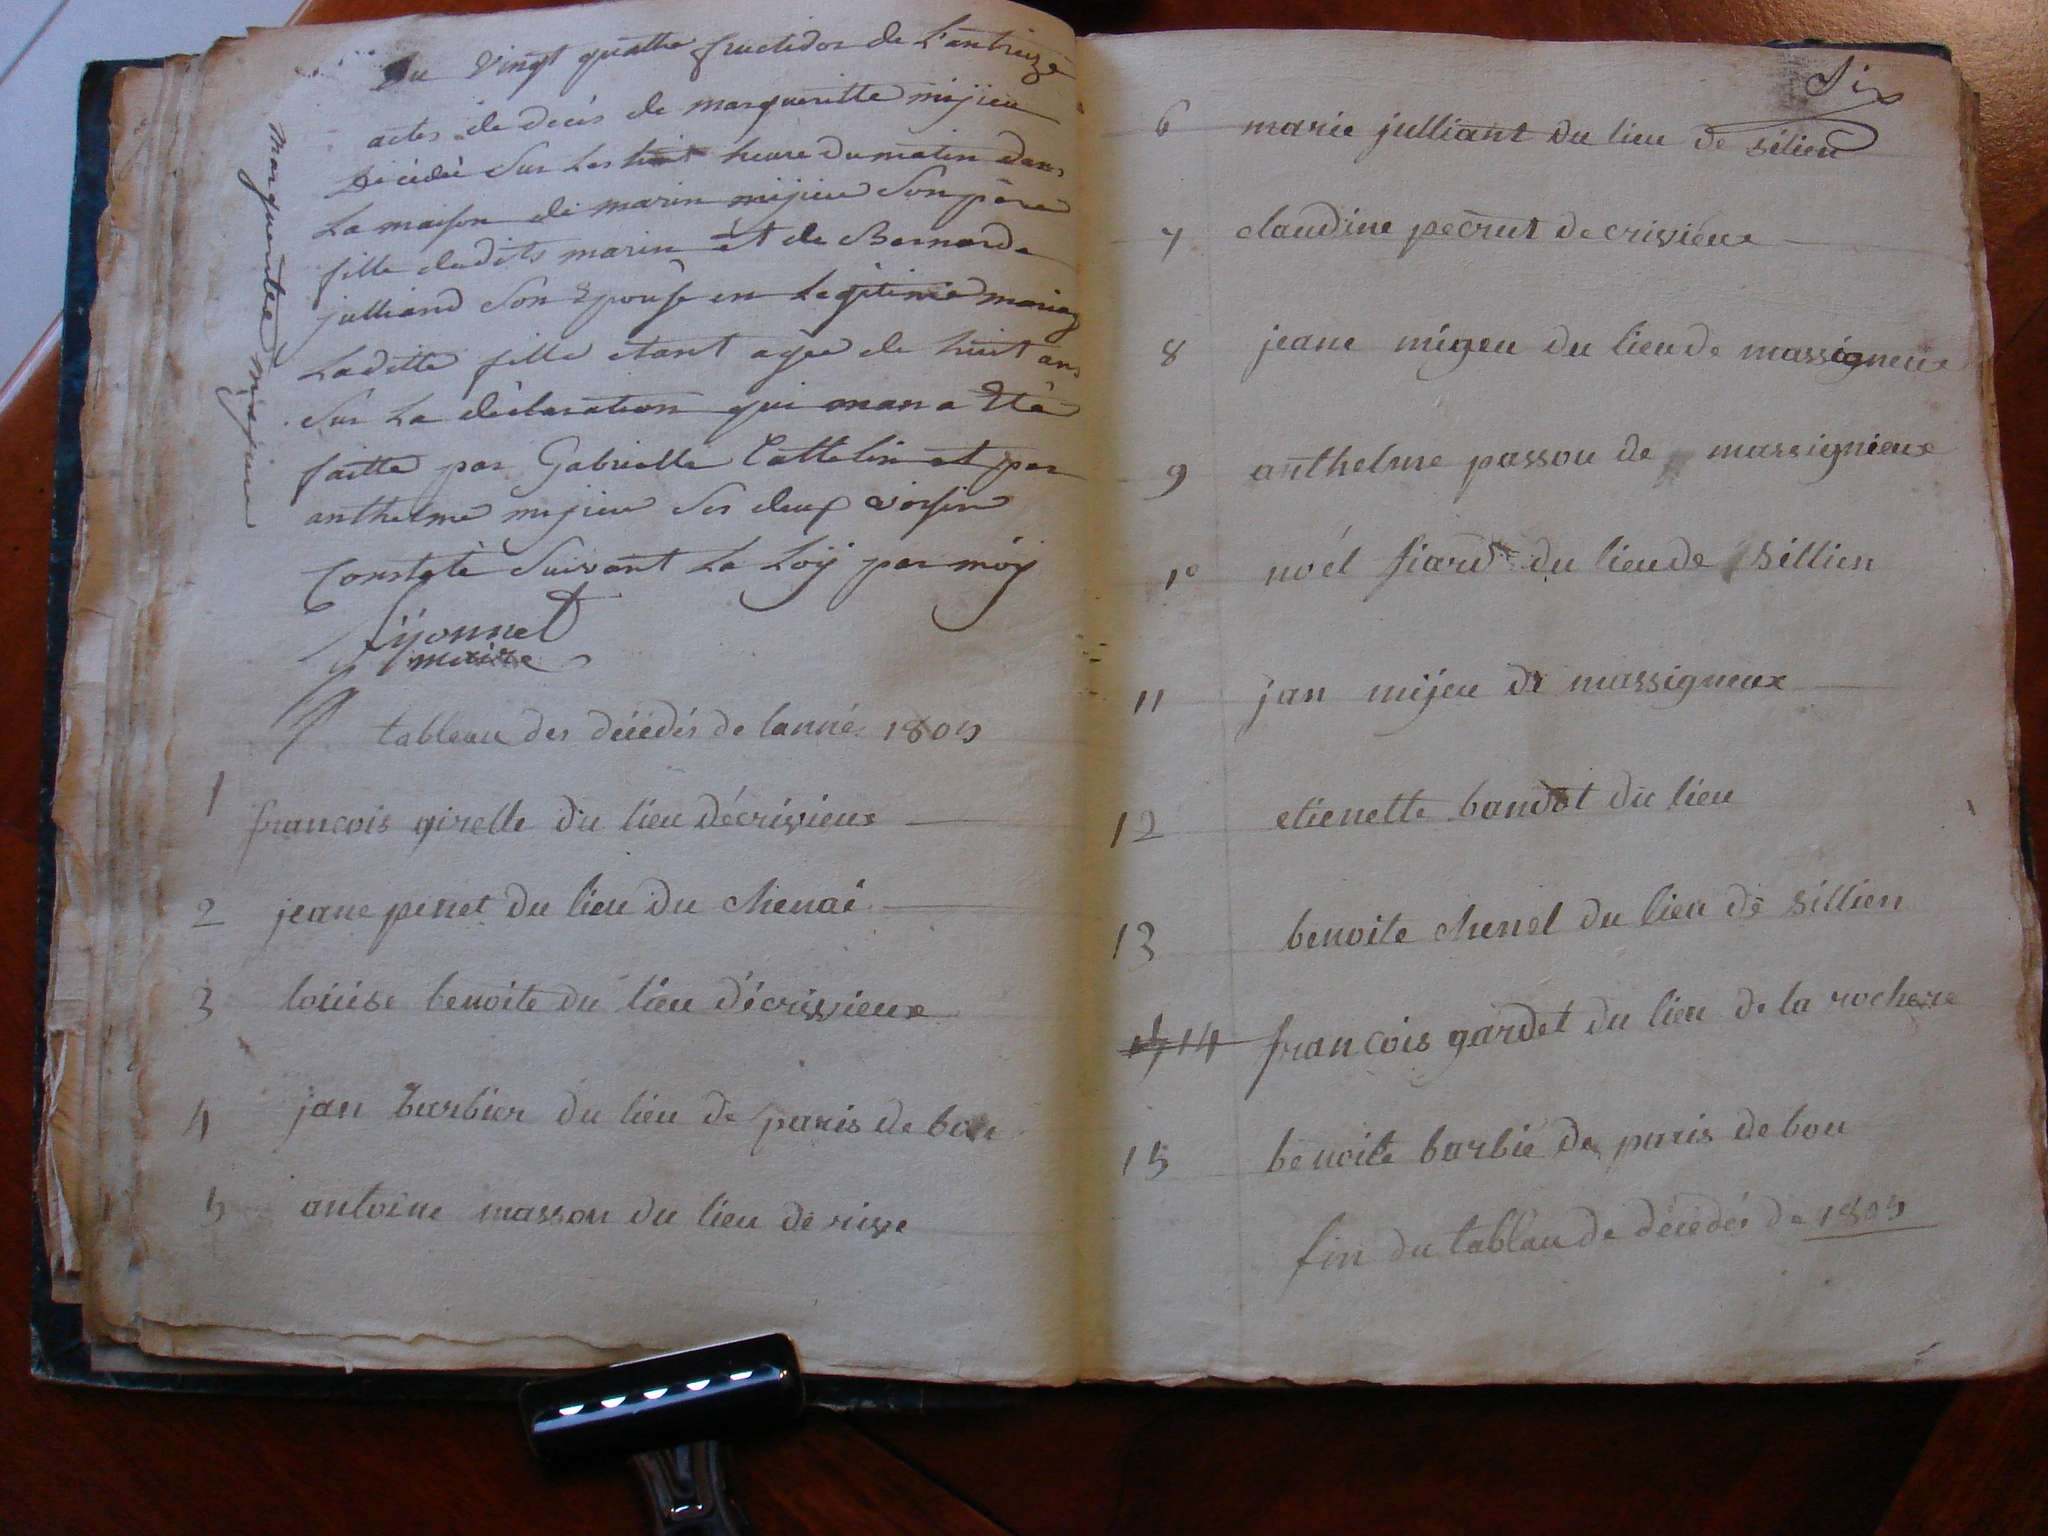 Du vingt quattre fructidor de l'an treize
actes de décès de margueritte mijieu
décédé sur les huit heure du matin dans
La maison de marin mijieu son père
fille dudits marin ét de Bernarde
julliand son Epouse en Légitimé mariag
Laditte fille étant agée de huit ans
sur La déclaration qui man a Eté
faitte par Gabrielle Cattelin et par
anthelme mijieu ses deux voisin
Constaté suivant La Loÿ par möy
Lÿonnet
maire
Margueritte mijieu
tableau des décédés de lanné 1805
1 francois girelle du lieu décrivieux
2 jeane penet du lieu du chenaé
3 louise benoite du lieu d'écrivieux
4 jan burbier du lieu de paris de bou
5 antoine masson du lieu de rive
Six
6 marie julliant du lieu de sélieu
7 claudine pecrut de crivieux
8 jeane migeu du lieu de massigneux
9 anthelme passou de massignieux
10 noél fiard du lieu de sillien
11 jan mijeu de massigneux
12 etienette bandot du lieu
13 benoite chenel du lieu de sillien
14 francois gardet du lieu de la rochere
15 benoite barbié de paris de bou
fin du tablau de décédés de 1805